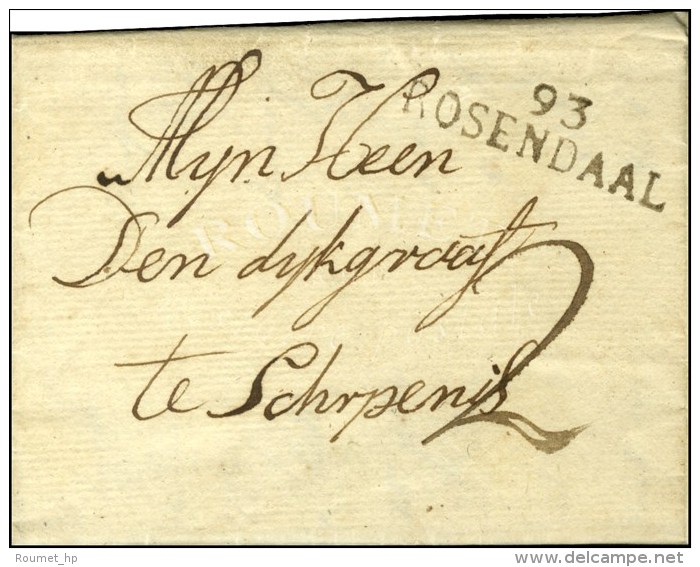 93
ROSENDAAL
Myn Heer
Den dykgraaf
te Schrpenis
2
ROUMET
Roumet_hp
delcampe.net